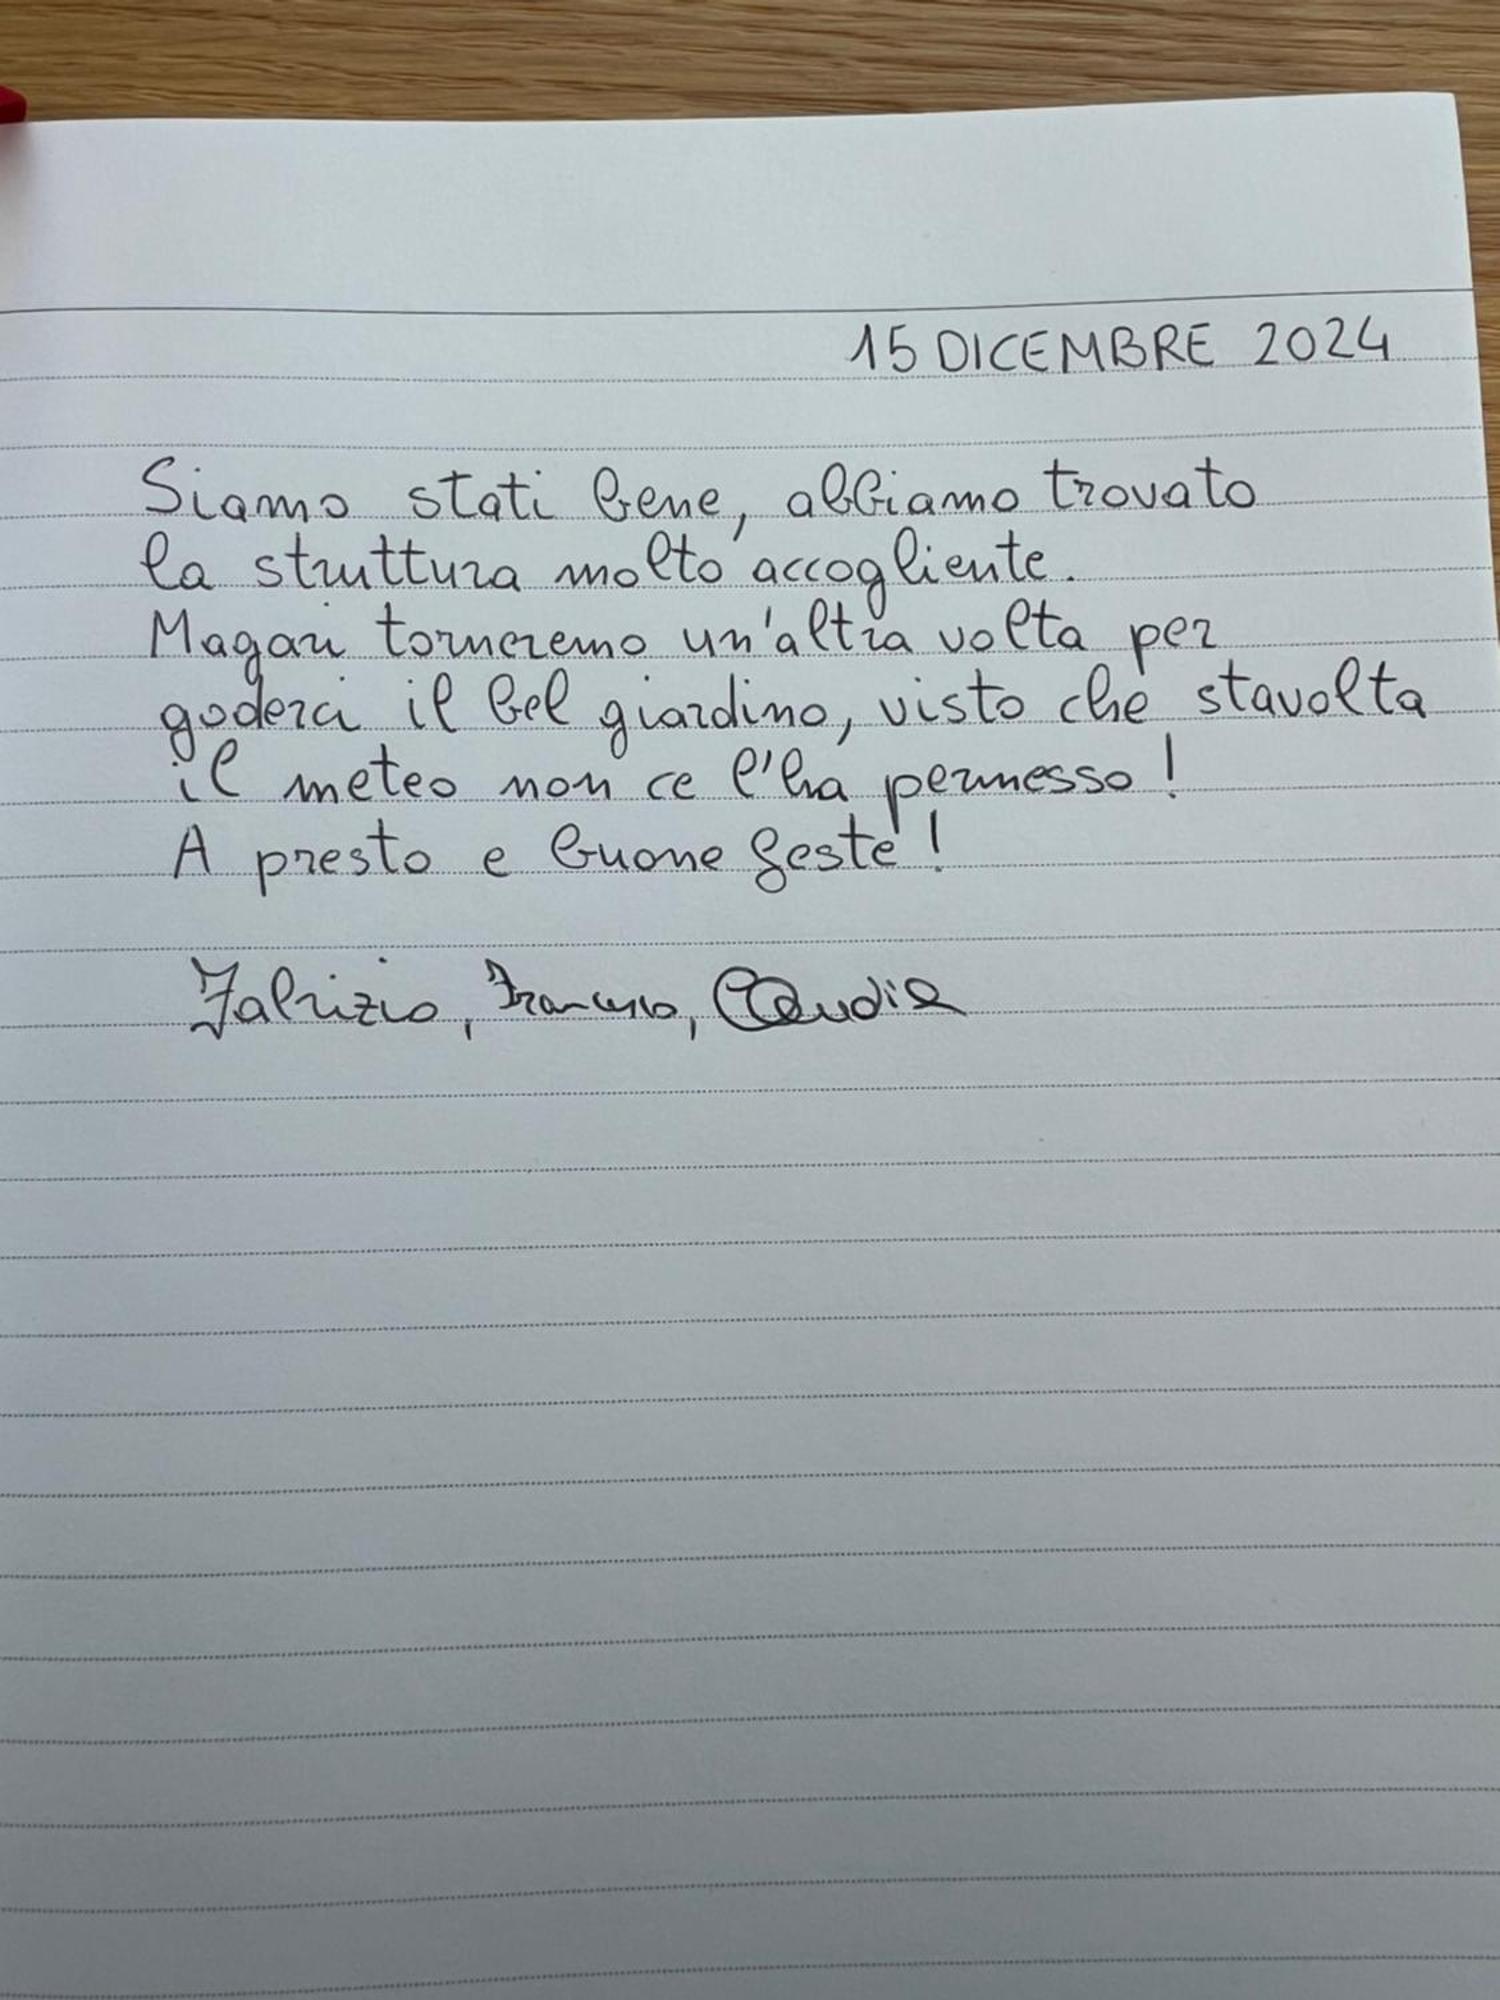 15 DICEMBRE 2024
Siamo stati bene, abbiamo trovato
la struttura molto accogliente.
Magari torneremo un'altra volta per
goderci il bel giardino, visto che stavolta
il meteo non ce l'ha permesso!
A presto e buone feste!
Fabrizio, Francesco, Claudia